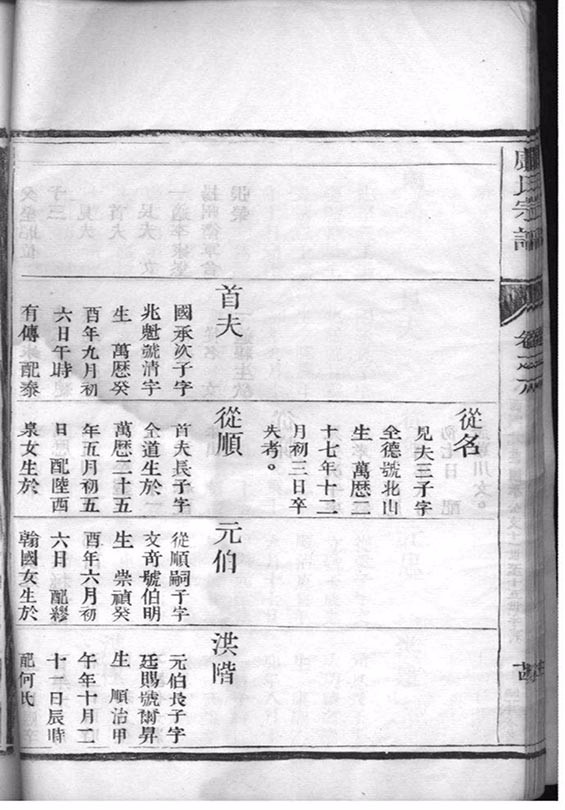 盧氏宗譜
卷之六
首夫
國承次子字
兆魁號清字
生 萬曆癸
酉年九月初
六日午時
有傳 配泰
從名
見夫三子字
全德號北山
生 萬曆二
十七年十二
月初三日卒
失考。
從順
首夫長子字
全道生於
萬曆三十五
年五月初五
日 配陸西
泉女生於
元伯
從順嗣子字
文奇號伯明
生 崇禎癸
酉年六月初
六日 配繆
翰國女生於
洪階
元伯長子字
廷賜號爾昇
生 順治甲
午年十月二
十一日辰時
配何氏